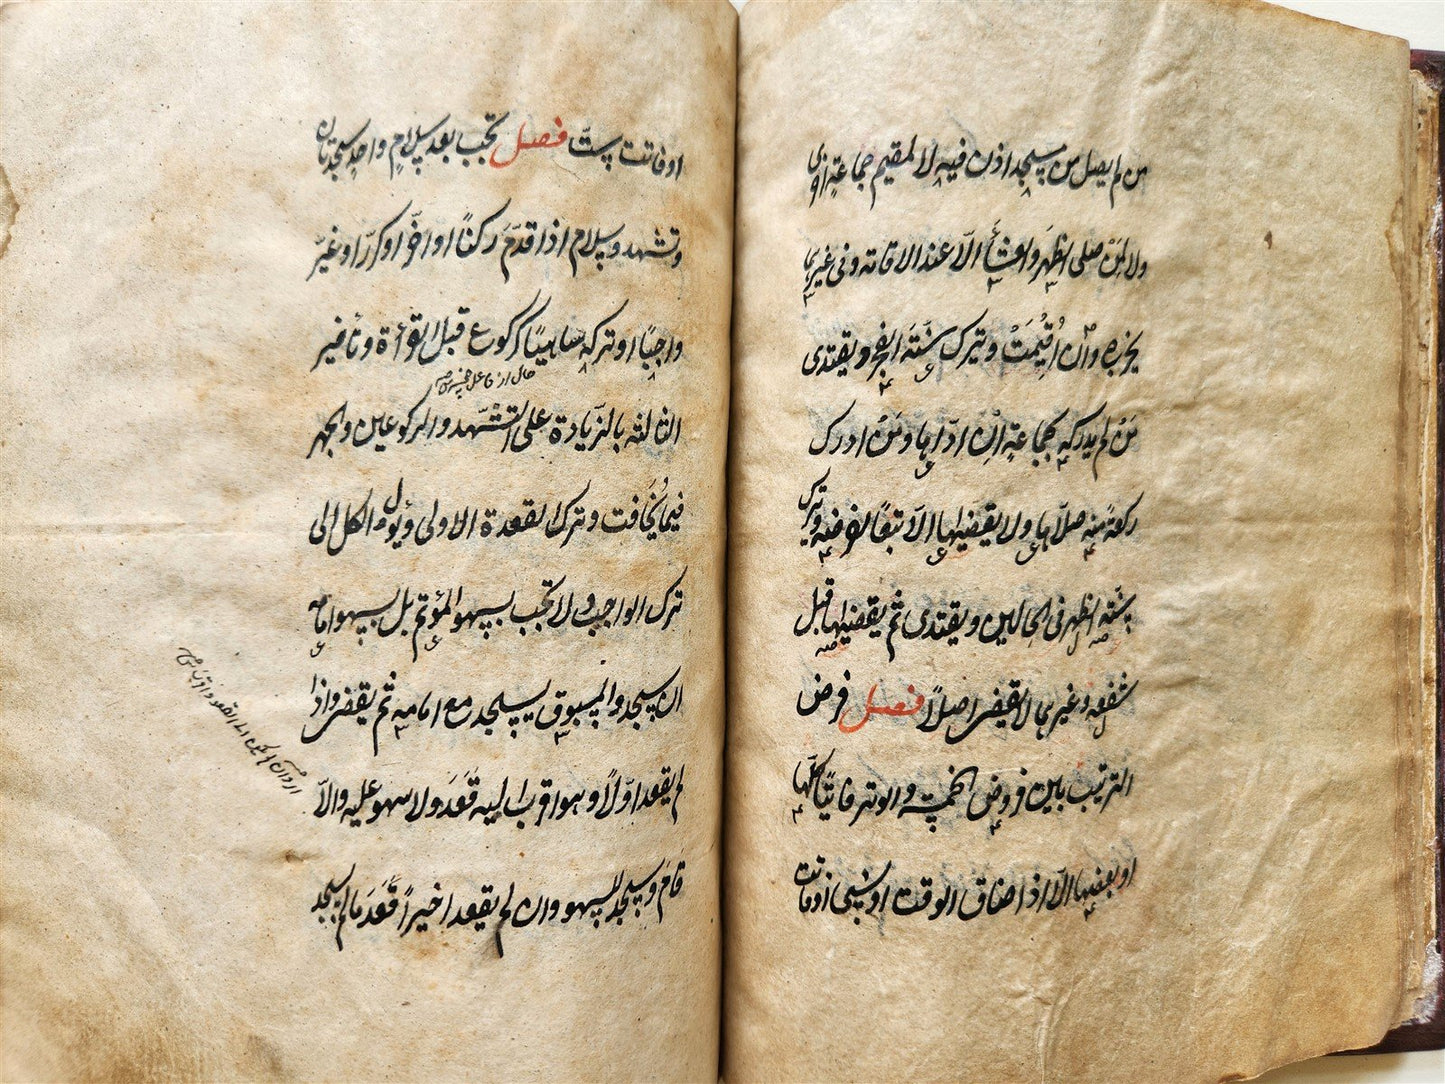 من لم يصل من مسجد اذن فيه لا لمقيم جماعة اخرى
ولا لمن صلى الظهر والعشأ الّا عند الاقامة وفى غيرهما
يخرج وان اُقيمَتْ ويترك سنّة الفجر ويقتدى
مَنْ لم يدركه بجماعة اِنْ ادّاها ومَنْ ادرك
ركعةً منه صلّاها ولا يقضيها الّا تبعًا لفرضه ويترك
سنّة الظهر فى الحالين ويقتدى ثم يقضيها قبل
شفعه وغيرهما لا يقضى اصلًا فصل فرض
الترتيب بين فروض الخمسة والوتر فائتًا كلّها
او بعضها الّا اذا ضاق الوقت او نسى او فاتت
او فاتت ستّ فصل تجب بعد سلام واحد سجدتان
وتشهد وسلام اذا قدّم ركنًا او اخّر او كرّر او غيّر
واجبًا او تركه ساهيًا كركوع قبل القرأة وتأخير
الثالثة بالزّيادة على التشهّد والركوعين والجهر
فيما يُخافت وترك القعدة الاولى ويؤل الكل الى
ترك الواجب ولا تجب بسهو المؤتم بل بسهو امامه
ان سجد والمسبوق يسجد مع امامه ثم يقضى واذا
لم يقعد اوّلًا وهو اقرب اليه قَعَدَ ولا سهو عليه والّا
قامَ وسجد للسهو وان لم يقعد اخيرًا قَعَدَ ما لم يسجد